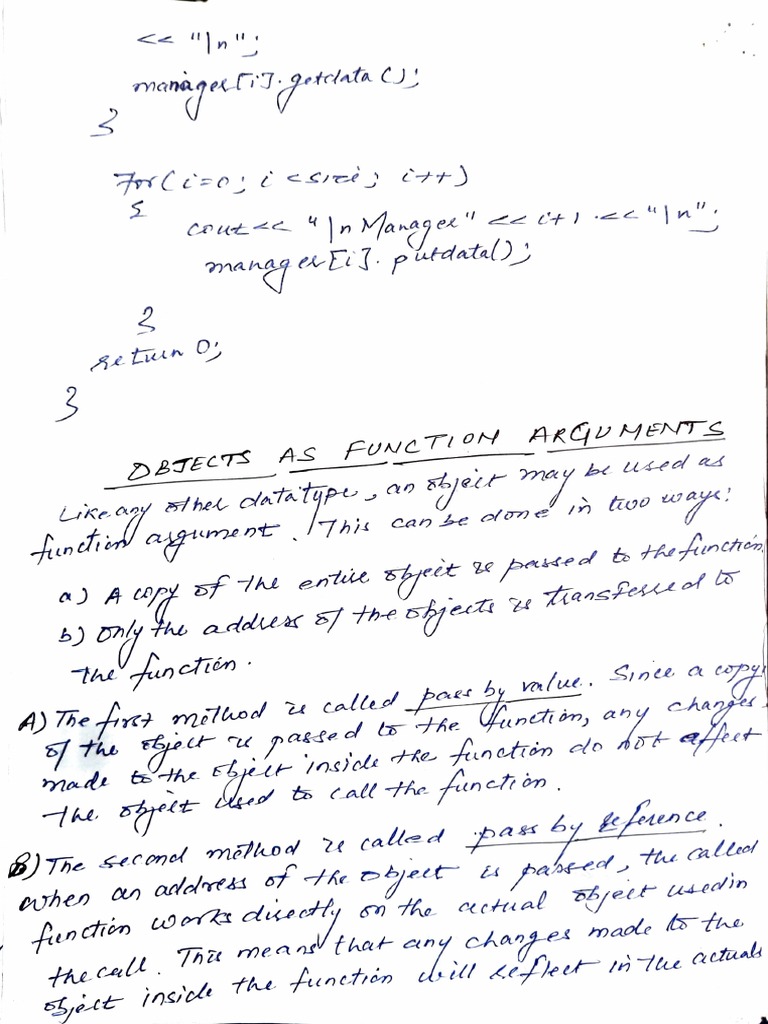 << "\n";
manager[i].getdata();
}
For(i=0; i<size; i++)
{
cout<< "\n Manager" << i+1 << "\n";
manager[i].putdata();
}
return 0;
}
OBJECTS AS FUNCTION ARGUMENTS
Like any other datatype, an object may be used as
function argument. This can be done in two ways:
a) A copy of the entire object is passed to the function.
b) Only the address of the objects is transferred to
the function.
A) The first method is called pass by value. Since a copy
of the object is passed to the function, any changes
made to the object inside the function do not affect
the object used to call the function.
B) The second method is called pass by reference.
when an address of the object is passed, the called
function works directly on the actual object used in
the call. This means that any changes made to the
object inside the function will reflect in the actuals